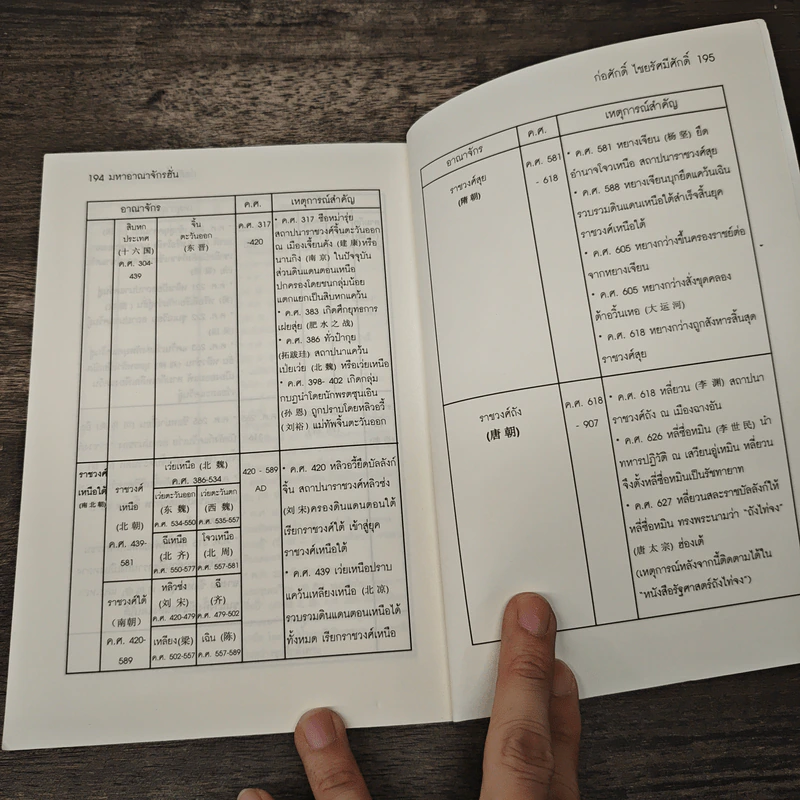 194 มหาอาณาจักรฮั่น
อาณาจักร
ค.ศ.
เหตุการณ์สำคัญ
สิบหก
ประเทศ
(十六国)
ค.ศ. 304-
439
จิ้น
ตะวันออก
(东晋)
ค.ศ. 317
-420
• ค.ศ. 317 ซือหม่ารุ่ย
สถาปนาราชวงศ์จิ้นตะวันออก
ณ เมืองเจี้ยนคัง (建康)หรือ
นานกิง (南京) ในปัจจุบัน
ส่วนดินแดนตอนเหนือ
ปกครองโดยชนกลุ่มน้อย
แตกแยกเป็นสิบหกแคว้น
• ค.ศ. 383 เกิดศึกยุทธการ
เฝยสุ่ย (肥水之战)
• ค.ศ. 386 ทั่วป๋ากุย
(拓跋珪) สถาปนาแคว้น
เป่ยเว่ย (北魏) หรือเว่ยเหนือ
• ค.ศ. 398- 402 เกิดกลุ่ม
กบฏนำโดยนักพรตซุนเอิน
(孙恩) ถูกปราบโดยหลิวอวี้
(刘裕) แม่ทัพจิ้นตะวันออก
ราชวงศ์
เหนือใต้
(南北朝)
ราชวงศ์
เหนือ
(北朝)
ค.ศ. 439-
581
เว่ยเหนือ (北魏)
ค.ศ. 386-534
เว่ยตะวันออก
(东魏)
ค.ศ. 534-550
เว่ยตะวันตก
(西魏)
ค.ศ. 535-557
ฉีเหนือ
(北齐)
ค.ศ. 550-577
โจวเหนือ
(北周)
ค.ศ. 557-581
ราชวงศ์ใต้
(南朝)
ค.ศ. 420-
589
หลิวซ่ง
(刘宋)
ค.ศ. 420-479
ฉี
(齐)
ค.ศ. 479-502
เหลียง(梁)
ค.ศ. 502-557
เฉิน (陈)
ค.ศ. 557-589
420 - 589
AD
• ค.ศ. 420 หลิวอวี้ยึดบัลลังก์
จิ้น สถาปนาราชวงศ์หลิวซ่ง
(刘宋)ครองดินแดนตอนใต้
เรียกราชวงศ์ใต้ เข้าสู่ยุค
ราชวงศ์เหนือใต้
• ค.ศ. 439 เว่ยเหนือปราบ
แคว้นเหลียงเหนือ (北凉)
รวบรวมดินแดนตอนเหนือได้
ทั้งหมด เรียกราชวงศ์เหนือ
ก่อศักดิ์ ไชยรัศมีศักดิ์ 195
อาณาจักร
ค.ศ.
เหตุการณ์สำคัญ
ราชวงศ์สุย
(隋朝)
ค.ศ. 581
- 618
• ค.ศ. 581 หยางเจียน (杨坚) ยึด
อำนาจโจวเหนือ สถาปนาราชวงศ์สุย
• ค.ศ. 588 หยางเจียนบุกยึดแคว้นเฉิน
รวบรวมดินแดนเหนือใต้สำเร็จสิ้นยุค
ราชวงศ์เหนือใต้
• ค.ศ. 605 หยางกว่างขึ้นครองราชย์ต่อ
จากหยางเจียน
• ค.ศ. 605 หยางกว่างสั่งขุดคลอง
ต้าอวิ้นเหอ (大运河)
• ค.ศ. 618 หยางกว่างถูกสังหารสิ้นสุด
ราชวงศ์สุย
ราชวงศ์ถัง
(唐朝)
ค.ศ. 618
- 907
• ค.ศ. 618 หลี่ยวน (李渊) สถาปนา
ราชวงศ์ถัง ณ เมืองฉางอัน
• ค.ศ. 626 หลี่ซื่อหมิน (李世民) นำ
ทหารปฏิวัติ ณ เสวียนอู่เหมิน หลี่ยวน
จึงตั้งหลี่ซื่อหมินเป็นรัชทายาท
• ค.ศ. 627 หลี่ยวนสละราชบัลลังก์ให้
หลี่ซื่อหมิน ทรงพระนามว่า “ถังไท่จง”
(唐太宗) ฮ่องเต้
(เหตุการณ์หลังจากนี้ติดตามได้ใน
“หนังสือรัฐศาสตร์ถังไท่จง”)